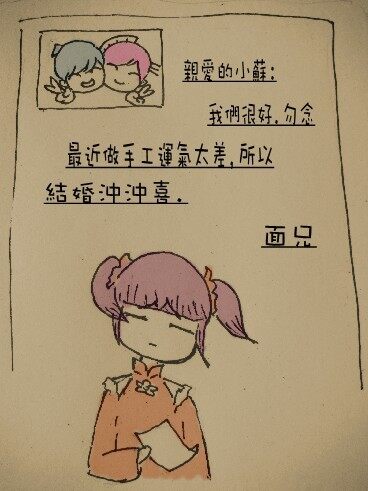 親愛的小蘇:
我們很好.勿念
最近做手工運氣太差,所以
結婚沖沖喜.
面兄